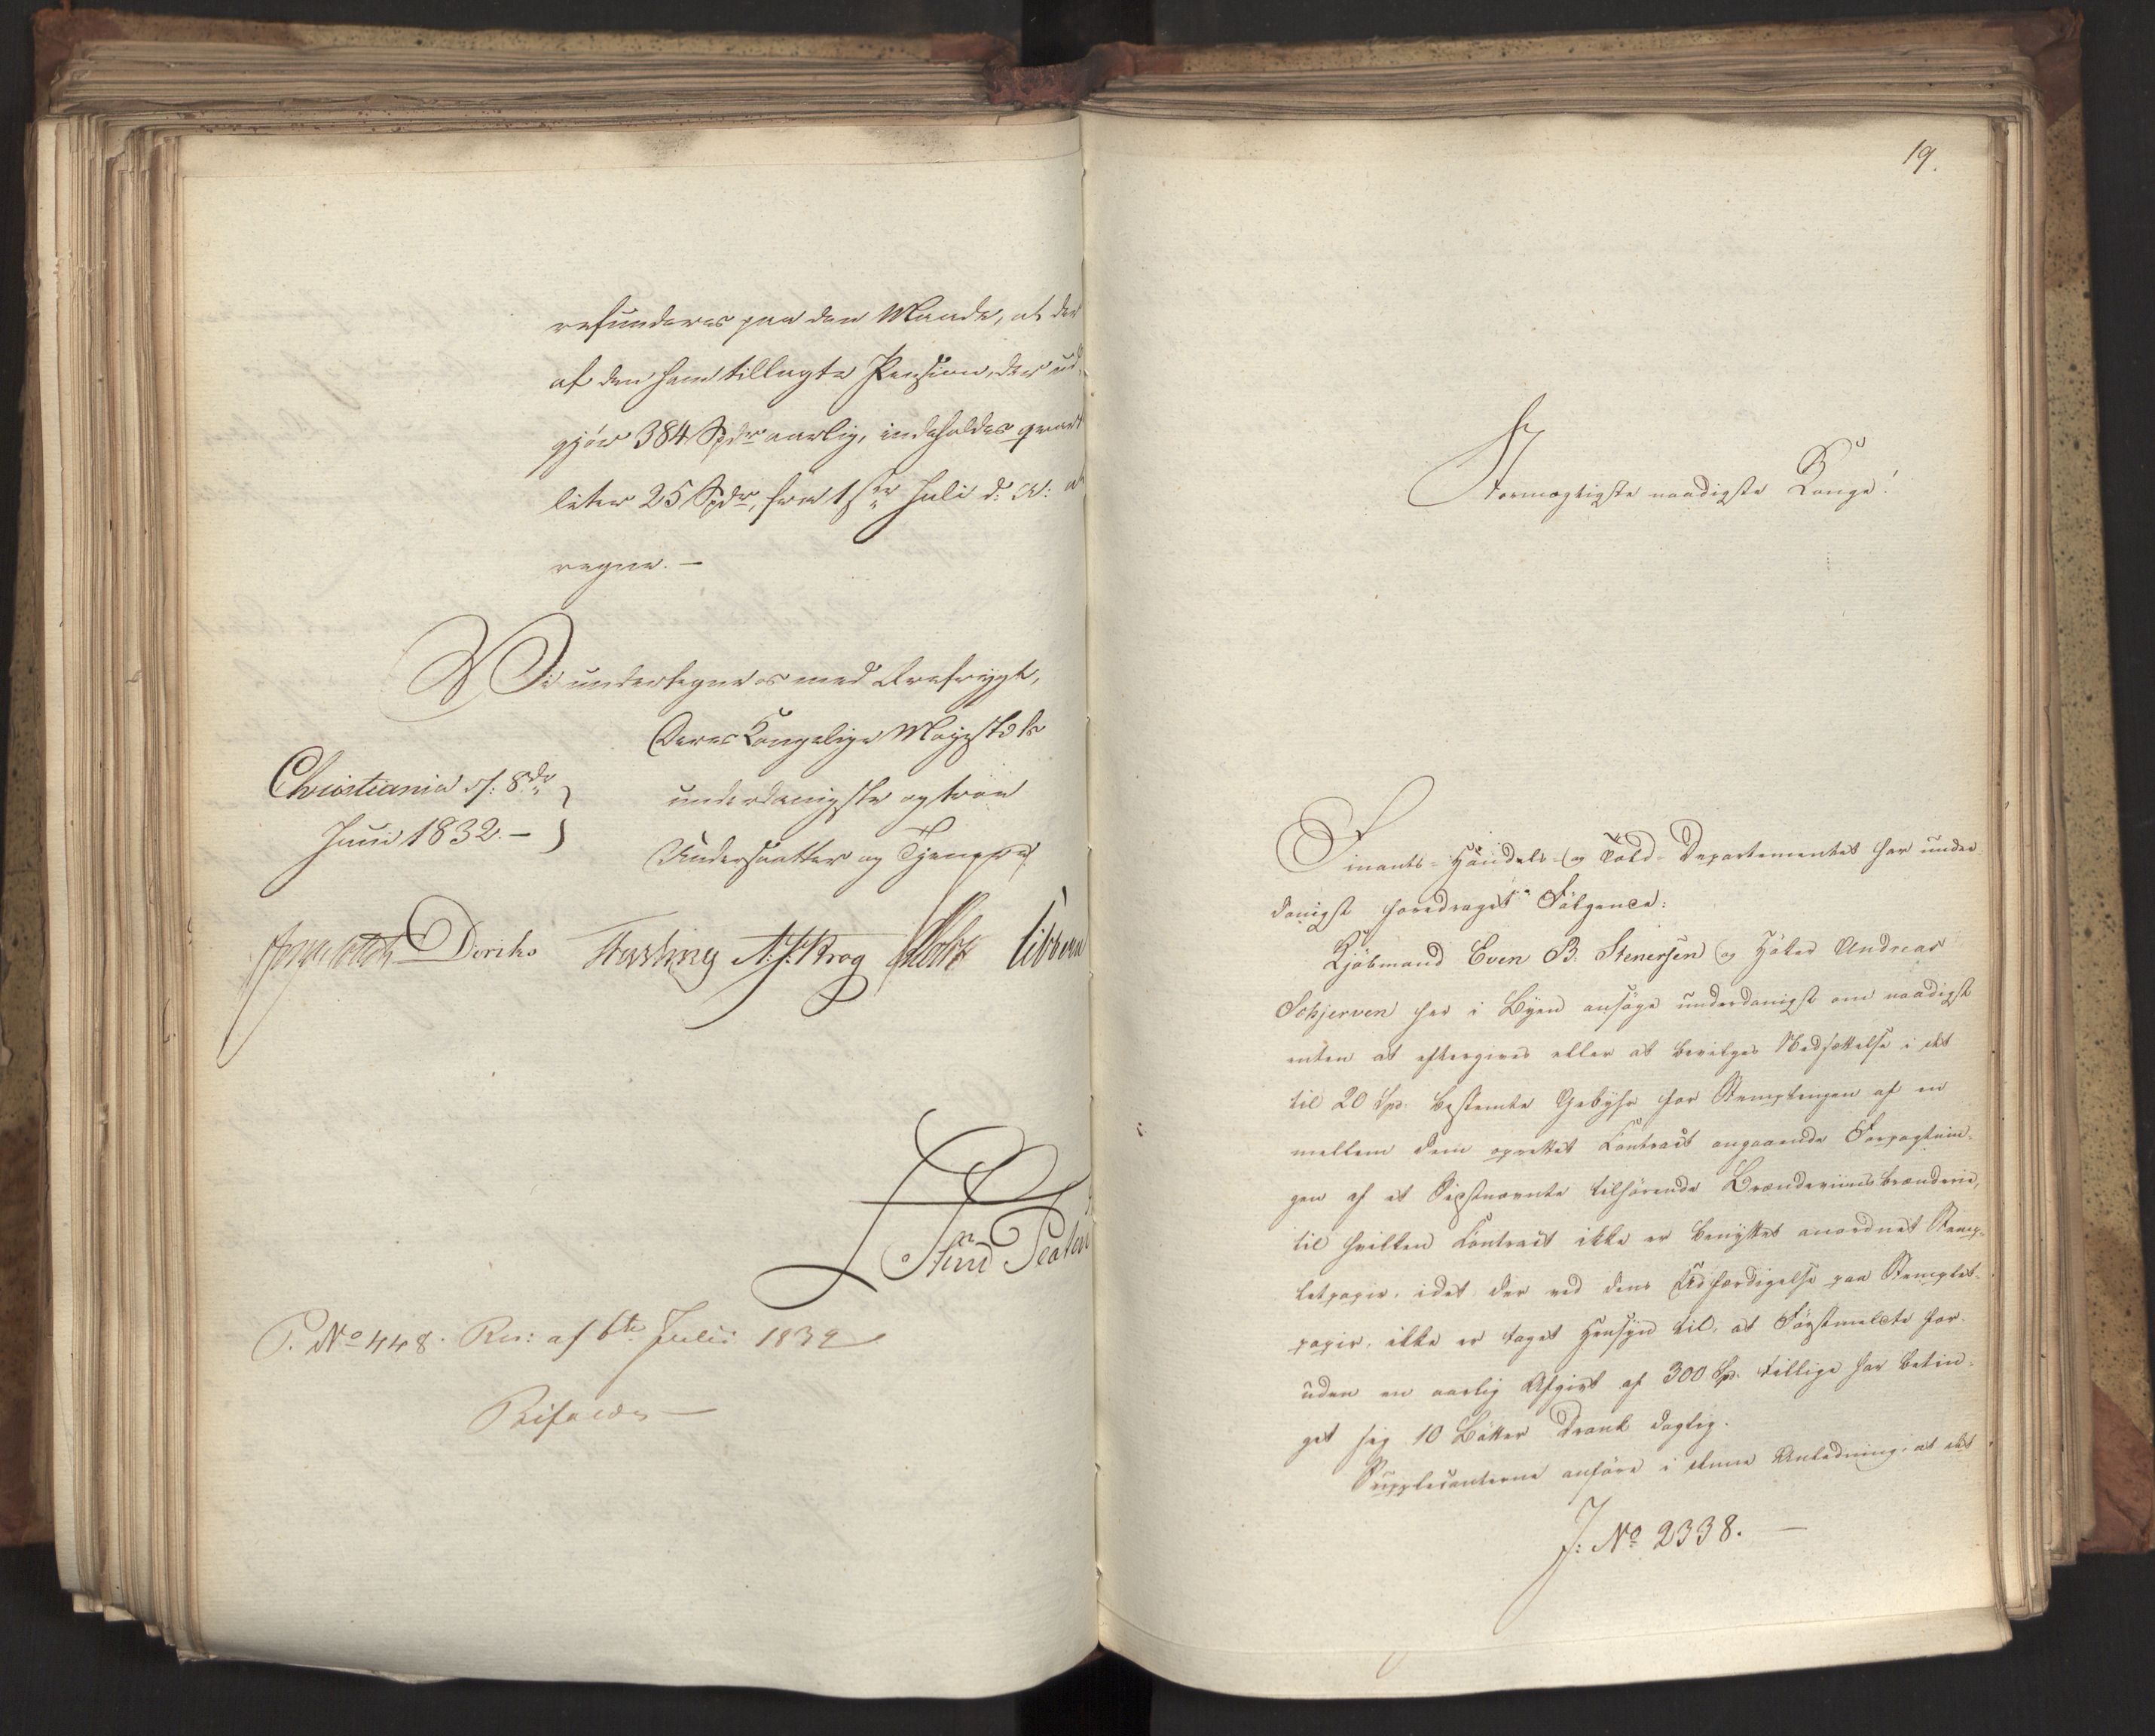 refunderes paa den Maade, at der
af den ham tillagte Pension, der ud-
gjör 384 Spdr aarlig, indeholdes qvart
liter 25 Spdr, fra 1ste Juli d: A: at
regne. –
Vi undertegne os med Ærefrygt,
Deres Kongelige Majestæts
Christiania d: 8de
underdanigste og troe
Juni 1832. –
Undersaatter og Tjenere
Diriks Fasting N: J: Krog Holst Sibbern
P. No 448. Res: af 6te Julii 1832
Bifaldes –
19.
Stormægtigste naadigste Konge!
Finants- Handels- og Told- Departementet har under-
danigst foredraget Fölgende:
Kjöbmand Even B. Stenersen og Höker Andreas
Schjerven her i Byen ansöge underdanigst om naadigst
enten at eftergives eller at bevilges Nedsættelse i det
til 20 Spd. bestemte Gebyhr for Stemplingen af en
mellem dem oprettet Contract angaaende Forpagtnin-
gen af et Sidstnævnte tilhörende Brændeviinsbrænderie,
til hvilken Contract ikke er benyttet anordnet Stemp-
letpapir, idet der ved dens Udfærdigelse paa Stemplet-
papir, ikke er taget Hensyn til, at Förstmeldte for-
uden en aarlig Afgivt af 300 Sp. tillige har betin-
get sig 10 Bötter Drank daglig.
Supplicanterne anföre i denne Anledning, at det
J: No 2338. –